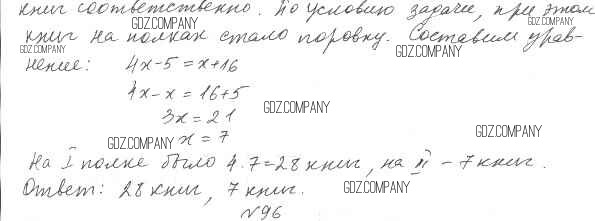 книг соответственно. По условию задачи, при этом
GDZ.COMPANY GDZ.COMPANY
книг на полках стало поровну. Составим урав-
GDZ.COMPANY GDZ.COMPANY
нение: 4x-5=x+16
4x-x=16+5
GDZ.COMPANY
3x=21
GDZ.COMPANY x=7 GDZ.COMPANY
На I полке было 4·7=28 книг, на II - 7 книг.
Ответ: 28 книг, 7 книг. GDZ.COMPANY
№96